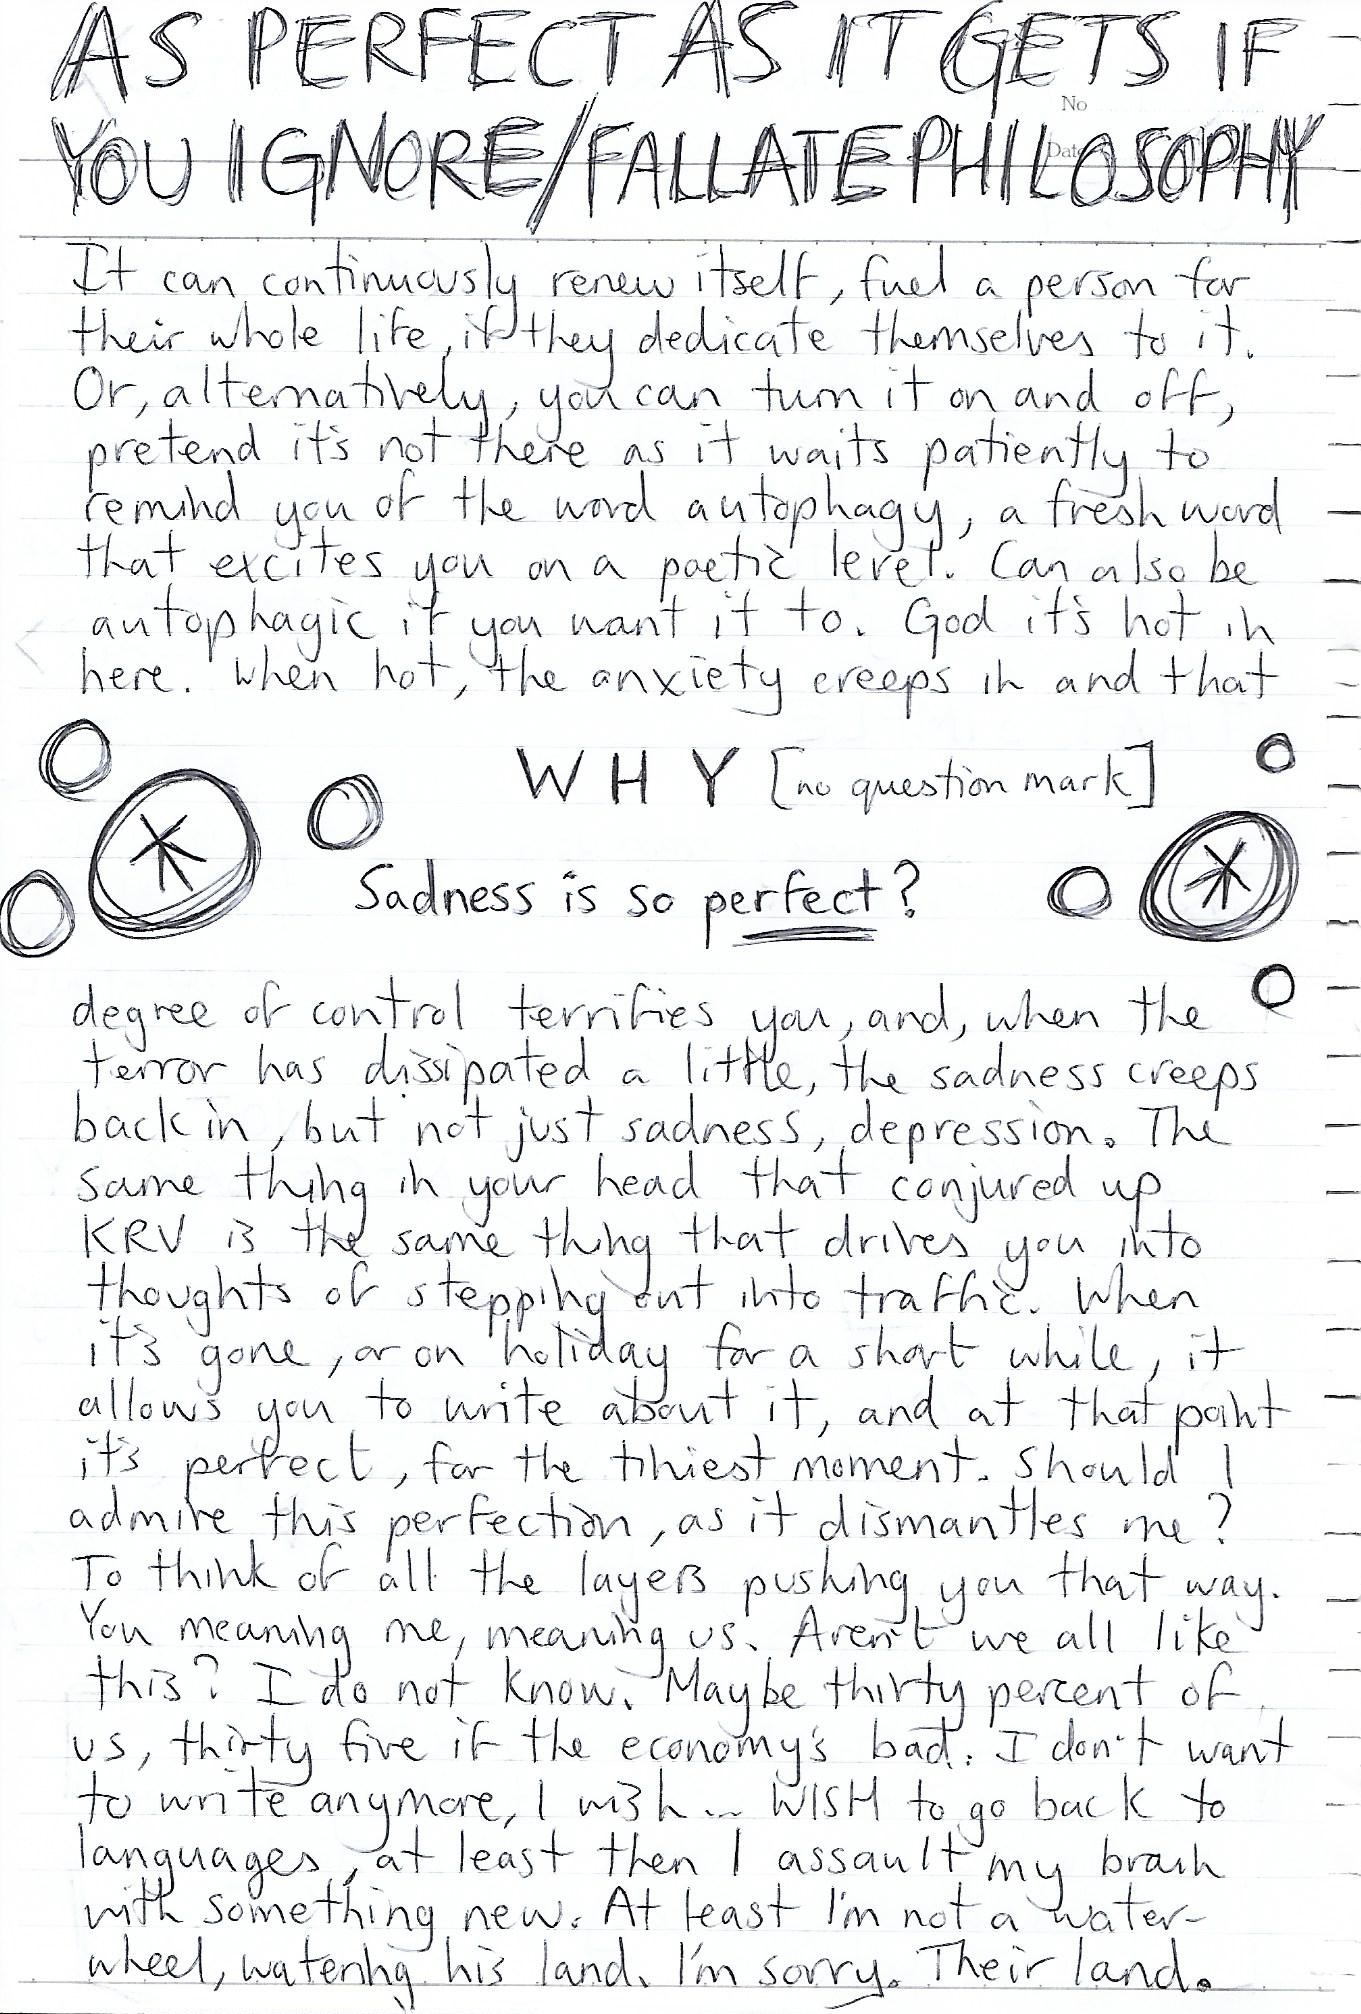 AS PERFECT AS IT GETS IF
No
YOU IGNORE/FALLATE PHILOSOPHY
Date
It can continuously renew itself, fuel a person for
their whole life, if they dedicate themselves to it.
Or, alternatively, you can turn it on and off,
pretend it's not there as it waits patiently to
remind you of the word autophagy, a fresh word
that excites you on a poetic level. Can also be
autophagic if you want it to. God it's hot in
here. When hot, the anxiety creeps in and that
WHY [no question mark]
Sadness is so perfect?
degree of control terrifies you, and, when the
terror has dissipated a little, the sadness creeps
back in, but not just sadness, depression. The
same thing in your head that conjured up
KRV is the same thing that drives you into
thoughts of stepping out into traffic. When
it's gone, or on holiday for a short while, it
allows you to write about it, and at that point
it's perfect, for the tiniest moment. Should I
admire this perfection, as it dismantles me?
To think of all the layers pushing you that way.
You meaning me, meaning us. Aren't we all like
this? I do not know. Maybe thirty percent of
us, thirty five if the economy's bad. I don't want
to write anymore, I wish... WISH to go back to
languages, at least then I assault my brain
with something new. At least I'm not a water-
wheel, watering his land. I'm sorry. Their land.